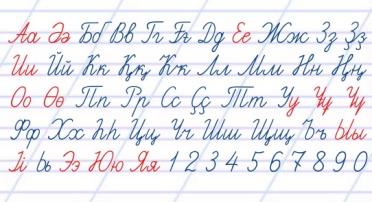 Аа Әә Бб Вв Гг Ғғ Дд Ее Жж Зз Ҙҙ
Ии Йй Кк Ққ Ҡҡ Лл Мм Нн Ңң
Оо Өө Пп Рр Сс Ҫҫ Тт Уу Ұұ Үү
Фф Хх Һһ Цц Чч Шш Щщ Ъъ Ыы
Іі ь Ээ Юю Яя 1 2 3 4 5 6 7 8 9 0